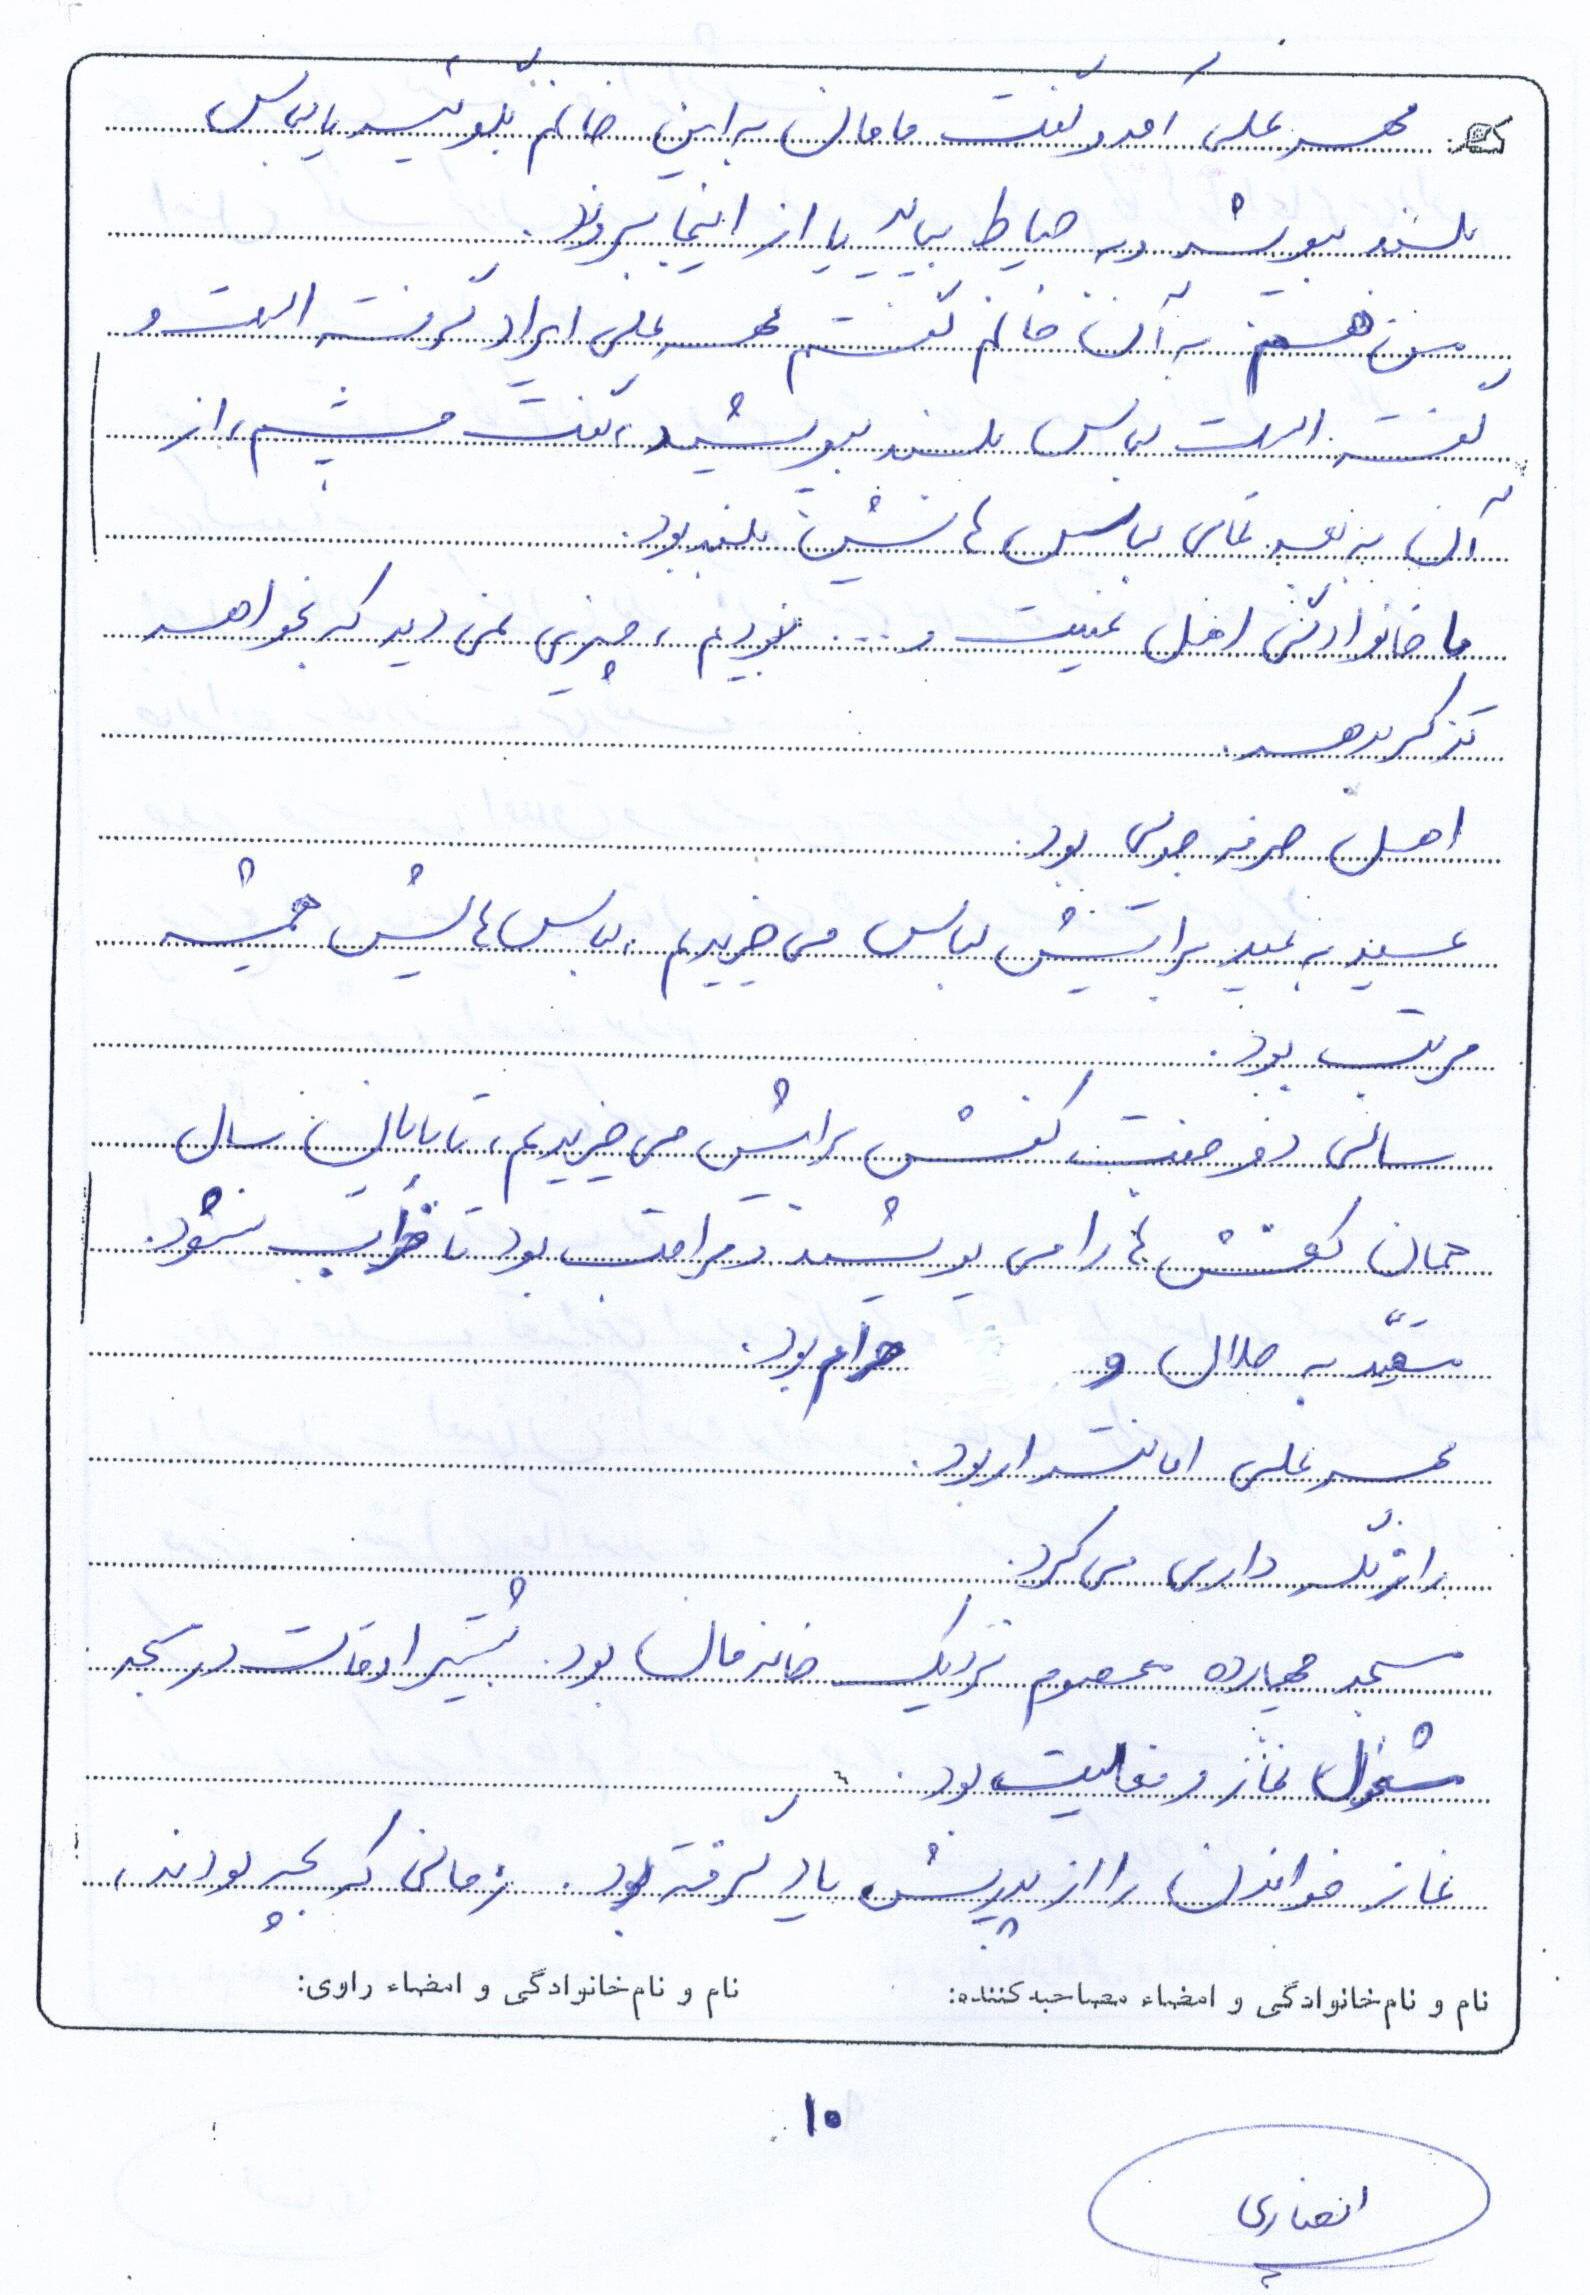 مهرعلی آمد و گفت مامان به این خانم بگوئید یا لباس
بلند بپوشد و به حیاط بیاید یا از اینجا برود.
من هم به آن خانم گفتم مهرعلی ایراد گرفته است و
گفته است لباس بلند بپوشید، گفت چشم، از
آن به بعد تمام لباس هایش بلند بود.
ما خانوادگی اهل غیبت و ... نبودیم، چیزی نمی دید که بخواهد
تذکر بدهد.
اهل صرفه جویی بود.
عید به عید برایش لباس می خریدیم، لباس هایش همیشه
مرتب بود.
سالی دو جفت کفش برایش می خریدیم، تا پایان سال
همان کفش ها را می پوشید و مراقب بود تا خراب نشود.
مقیّد به حلال و حرام بود.
مهرعلی امانتدار بود.
رازنگه داری می کرد.
مسجد چهارده معصوم نزدیک خانه مان بود. بیشتر اوقات در مسجد
مشغول نماز و فعالیت بود.
نماز خواندن را از پدرش یاد گرفته بود. زمانی که بچه بودند،
نام و نام خانوادگی و امضاء مصاحبه کننده: نام و نام خانوادگی و امضاء راوی:
۱۰
انصاری